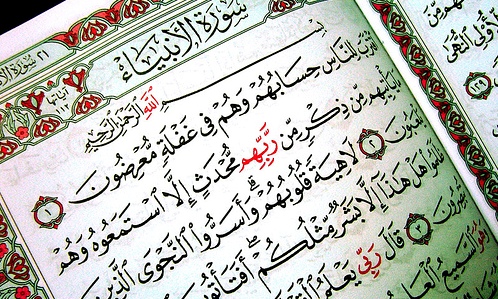 سُورَةُ الأَنبِيَاءِ
٢١ سورة الأ
آياتها
١١٢
بِسْمِ ٱللَّهِ ٱلرَّحْمَٰنِ ٱلرَّحِيمِ
تَرَبَ لِلنَّاسِ حِسَابُهُمْ وَهُمْ فِى غَفْلَةٍ مُّعْرِضُونَ ١
يَأْتِيهِم مِّن ذِكْرٍ مِّن رَّبِّهِم مُّحْدَثٍ إِلَّا ٱسْتَمَعُوهُ وَهُمْ
عَبُونَ ٢ لَاهِيَةً قُلُوبُهُمْ وَأَسَرُّوا۟ ٱلنَّجْوَى ٱلَّذِينَ
هَلْ هَٰذَآ إِلَّا بَشَرٌ مِّثْلُكُمْ أَفَتَأْتُو
صِرُونَ ٣ قَالَ رَبِّى يَعْلَمُ ٱلْ
ٱلسَّمِيعُ ٱلْعَ